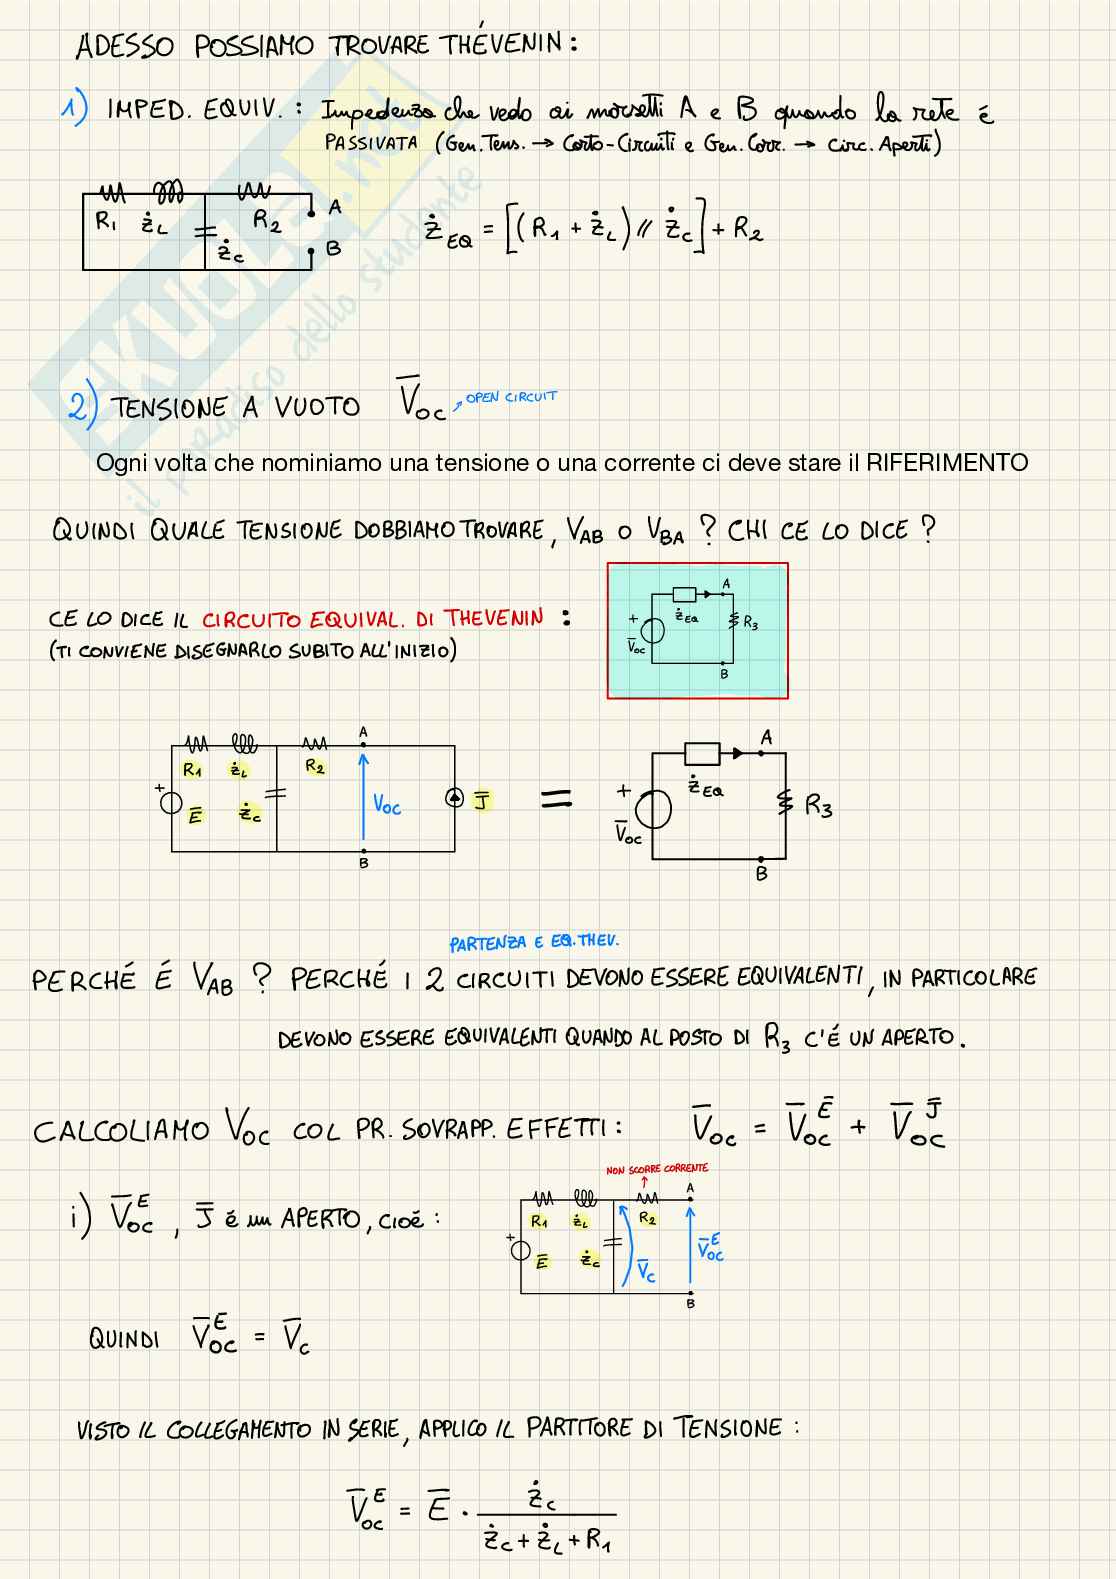 ADESSO POSSIAMO TROVARE THÉVENIN:
1) IMPED. EQUIV. : Impedenza che vedo ai morsetti A e B quando la rete é
PASSIVATA (Gen. Tens. → Corto-Circuiti e Gen. Corr. → Circ. Aperti)
R1 ŻL R2 A
ŻC B
ŻEQ = [(R1 + ŻL) // ŻC] + R2
SKUOLA.net
il paradiso dello studente
2) TENSIONE A VUOTO V̅OC OPEN CIRCUIT
Ogni volta che nominiamo una tensione o una corrente ci deve stare il RIFERIMENTO
QUINDI QUALE TENSIONE DOBBIAMO TROVARE, VAB O VBA ? CHI CE LO DICE ?
CE LO DICE IL CIRCUITO EQUIVAL. DI THEVENIN :
(TI CONVIENE DISEGNARLO SUBITO ALL'INIZIO)
A
+ ŻEQ R3
V̅OC
B
A
R1 ŻL R2
+ E̅ ŻC VOC J̅
B
=
A
+ ŻEQ R3
V̅OC
B
PARTENZA E EQ. THEV.
PERCHÉ É VAB ? PERCHÉ I 2 CIRCUITI DEVONO ESSERE EQUIVALENTI, IN PARTICOLARE
DEVONO ESSERE EQUIVALENTI QUANDO AL POSTO DI R3 C'É UN APERTO.
CALCOLIAMO VOC COL PR. SOVRAPP. EFFETTI : V̅OC = V̅OC^E̅ + V̅OC^J̅
NON SCORRE CORRENTE
i) V̅OC^E , J̅ é un APERTO, CIOÉ :
A
R1 ŻL R2
+ E̅ ŻC V̅C V̅OC^E
B
QUINDI V̅OC^E = V̅C
VISTO IL COLLEGAMENTO IN SERIE, APPLICO IL PARTITORE DI TENSIONE :
V̅OC^E = E̅ · ŻC
ŻC + ŻL + R1